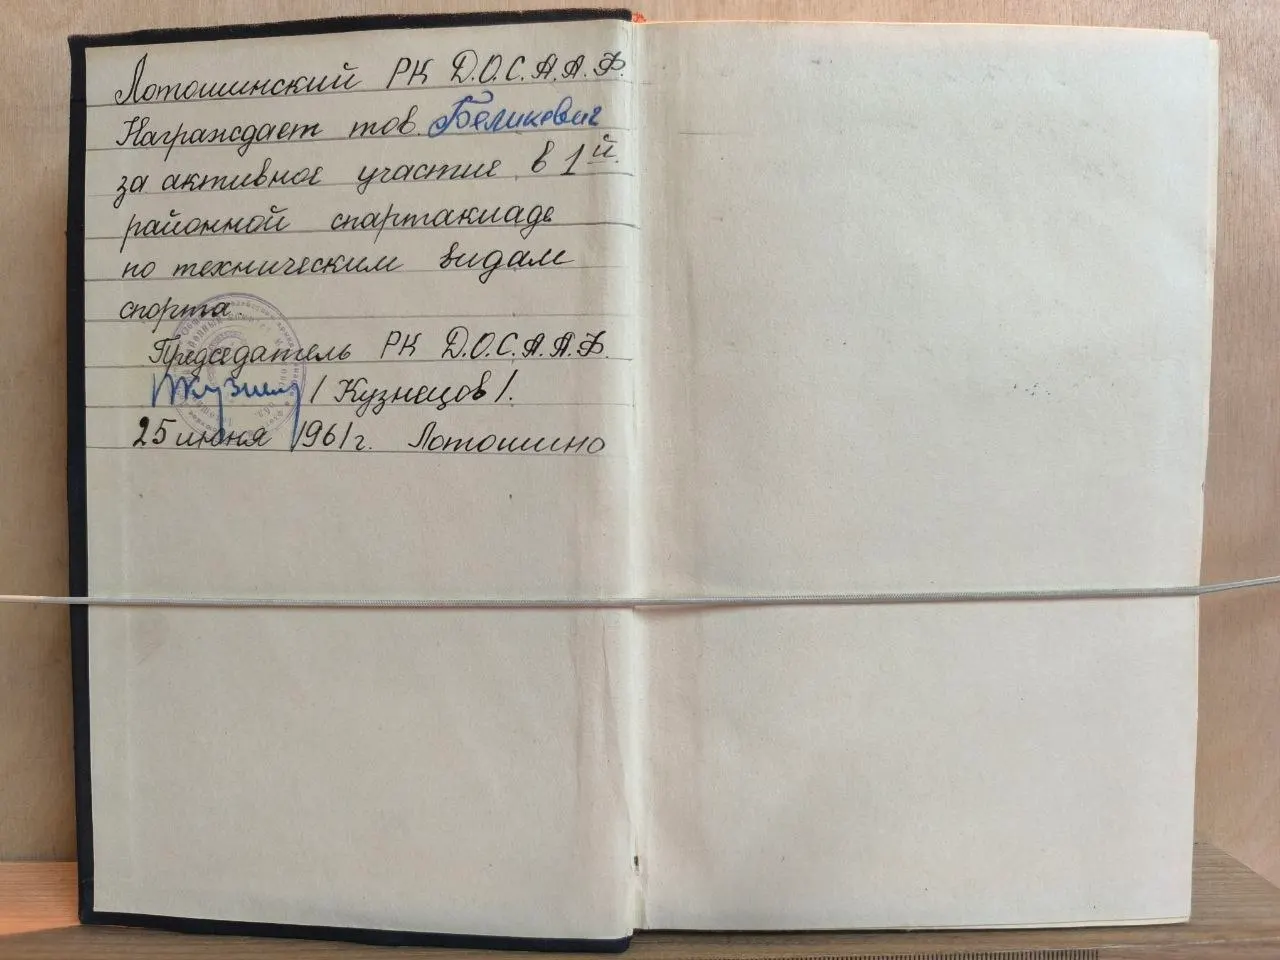 Лотошинский РК Д.О.С.А.А.Ф.
Награждает тов. Беликевич
за активное участие в 1й.
районной спартакиаде
по техническим видам
спорта.
Председатель РК Д.О.С.А.А.Ф.
/ Кузнецов /.
25 июня 1961 г. Лотошино